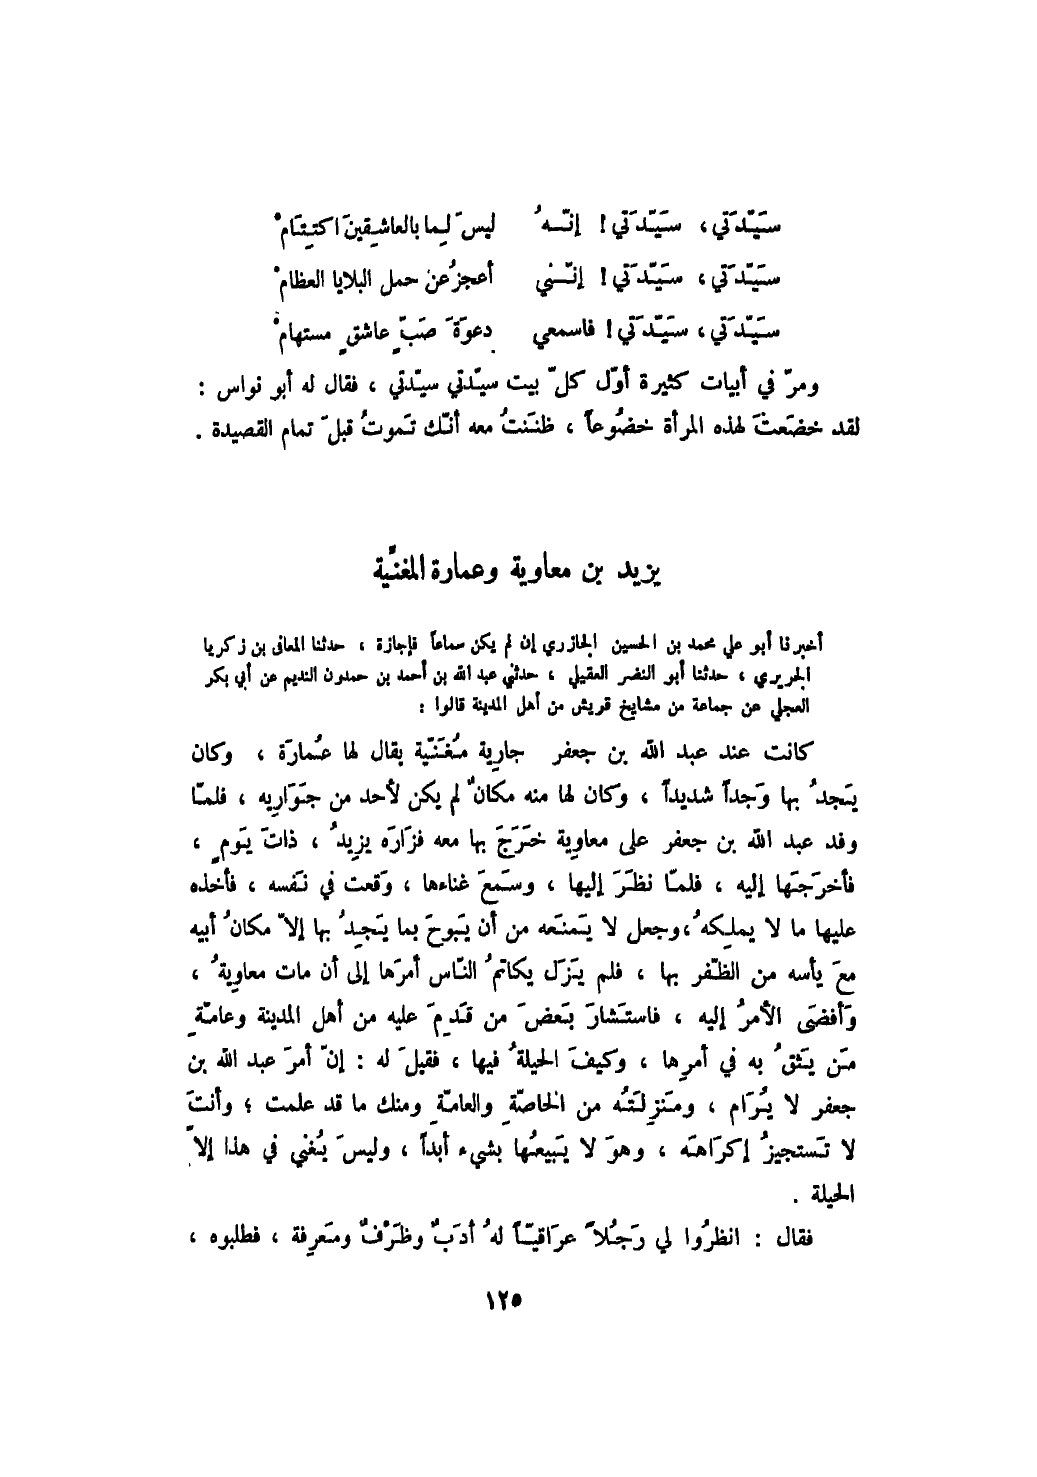 سَيّدَتي، سَيّدَتي! إنّهُ ليسَ لِما بالعاشِقينَ اكتِتَامْ
سَيّدَتي، سَيّدَتي! إنّني أعجزُ عن حمل البلايا العظامْ
سَيّدَتي، سَيّدَتي! فاسمعي دعوَةَ صَبٍّ عاشقٍ مستهامْ
ومرّ في أبيات كثيرة أوّل كلّ بيت سيّدتي سيّدتي ، فقال له أبو نواس :
لقد خضَعتَ لهذه المرأة خضُوعاً ، ظنَنتُ معه أنّك تَموتُ قبلَ تمام القصيدة .
يزيد بن معاوية وعمارة المغنّية
أخبرنا أبو علي محمد بن الحسين الجازري إن لم يكن سماعاً فإجازة ، حدثنا المعافى بن زكريا
الجريري ، حدثنا أبو النضر العقيلي ، حدثني عبد الله بن أحمد بن حمدون النديم عن أبي بكر
العجلي عن جماعة من مشايخ قريش من أهل المدينة قالوا :
كانت عند عبد الله بن جعفر جارية مُغَنّية يقال لها عُمارَة ، وكان
يَجِدُ بها وَجداً شديداً ، وكان لها منه مكانٌ لم يكن لأحد من جَوَارِيه ، فلمّا
وفد عبد الله بن جعفر على معاوية خَرَجَ بها معه فزَارَه يزيدُ ، ذاتَ يَومٍ ،
فأخرَجَها إليه ، فلمّا نظَرَ إليها ، وسَمعَ غناءها ، وَقعت في نَفسه ، فأخذه
عليها ما لا يملِكهُ ،وجعل لا يَمنَعه من أن يَبوحَ بما يَجِدُ بها إلاّ مكانُ أبيه
معَ يأسه من الظّفر بها ، فلم يَزَل يكاتمُ النّاس أمرَها إلى أن مات معاويةُ ،
وَأفضَى الأمرُ إليه ، فاستَشارَ بَعضَ من قَدِمَ عليه من أهل المدينة وعامّةِ
مَن يَثقُ به في أمرِها ، وكيفَ الحيلةُ فيها ، فقيلَ له : إنّ أمرَ عبد الله بن
جعفر لا يُرَام ، ومَنزِلَتُه من الخاصّةِ والعامّةِ ومنك ما قد علمت ؛ وأنتَ
لا تَستجيزُ إكرَاهَه ، وهوَ لا يَبيعُها بشيء أبداً ، وليسَ يُغني في هذا إلاّ
الحيلة .
فقال : انظرُوا لي رَجُلاً عرَاقيّاً لهُ أدَبٌ وظَرْفٌ ومَعرِفة ، فطلبوه ،
١٢٥